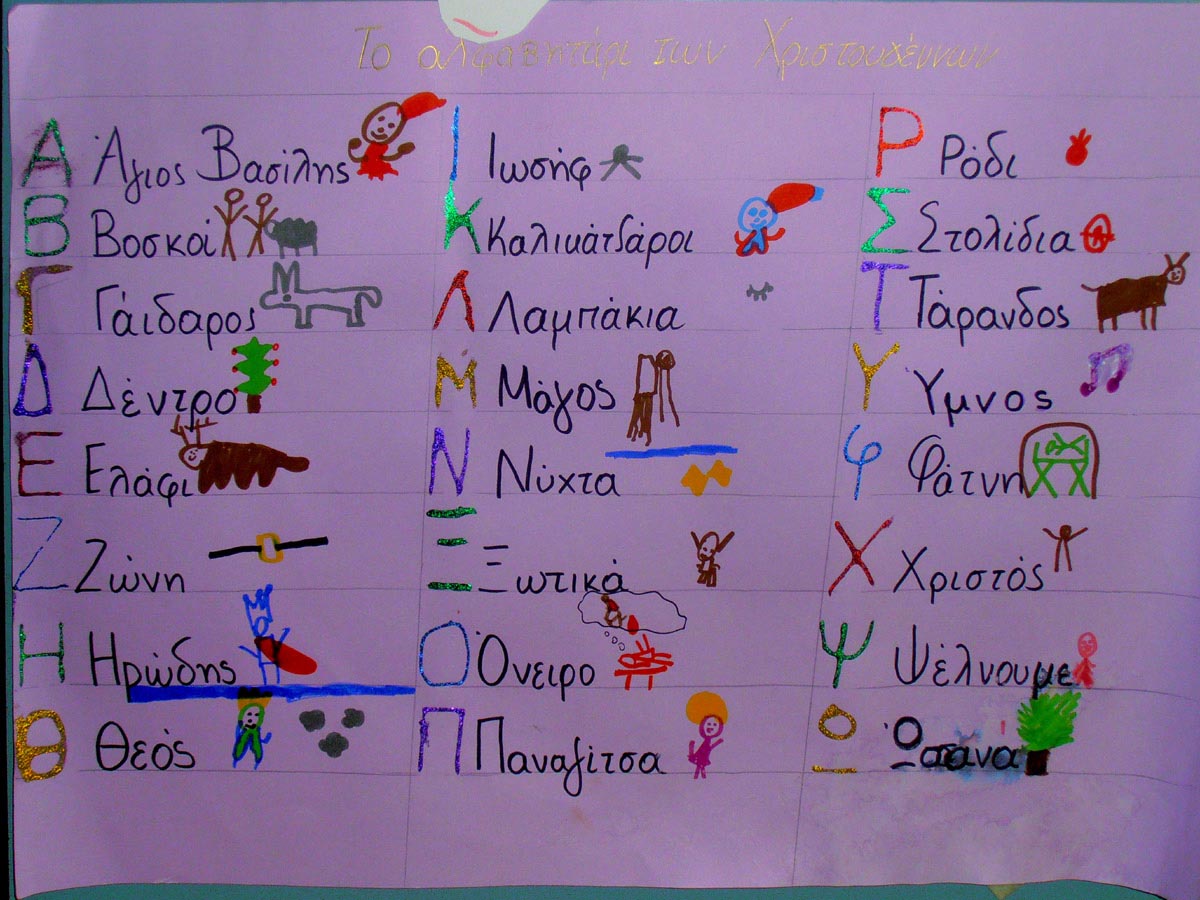 Το αλφαβητάρι των Χριστουγέννων
Α Άγιος Βασίλης
Β Βοσκοί
Γ Γάιδαρος
Δ Δέντρο
Ε Ελάφι
Ζ Ζώνη
Η Ηρώδης
Θ Θεός
Ι Ιωσήφ
Κ Καλικάτζάροι
Λ Λαμπάκια
Μ Μάγος
Ν Νύχτα
Ξ Ξωτικά
Ο Όνειρο
Π Παναγίτσα
Ρ Ρόδι
Σ Στολίδια
Τ Τάρανδος
Υ Ύμνος
φ Φάτνη
Χ Χριστός
Ψ Ψέλνουμε
Ω Ωσανα